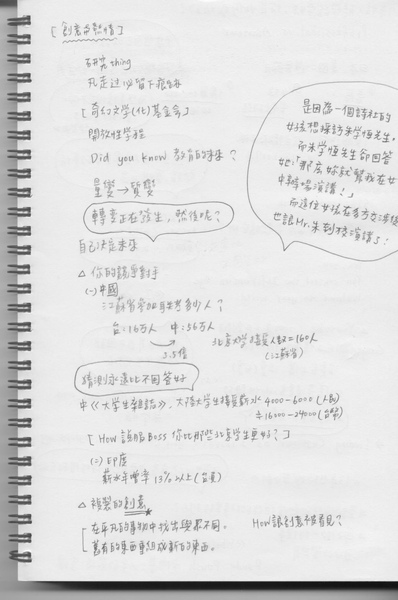 [創意與熱情]
研究thing
凡走过必留下痕跡
[奇幻文学(化)基金会]
開放性学程
Did you know 教育的未来?
量變→質變
轉变正在發生,然後呢?
自己決定未来
是因為一個詩社的
女孩想採訪朱学恒先生。
而朱学恒先生卻回答
她「那麼妳就幫我在女
中辦場演講!」
而這位女孩在多方交涉後
也讓Mr.朱到校演講了!
△ 你的競爭對手
(一)中國
江蘇省參加聯考多少人?
台:16万人 中:56万人
3.5倍
北京大学錄取人数=160人
(江蘇省)
猜測永遠比不回答好
中《大学生雜誌》,大陸大学生接受薪水 4000-6000(人幣)
≒16000-24000(台幣)
[How 說服Boss 你比那些北京学生更好?]
(二)印度
薪水年增率 13%以上(台資)
△ 複製的創意★
[在平凡的事物中找出與眾不同。
舊有的東西重組成新的東西。
How讓創意被看見?